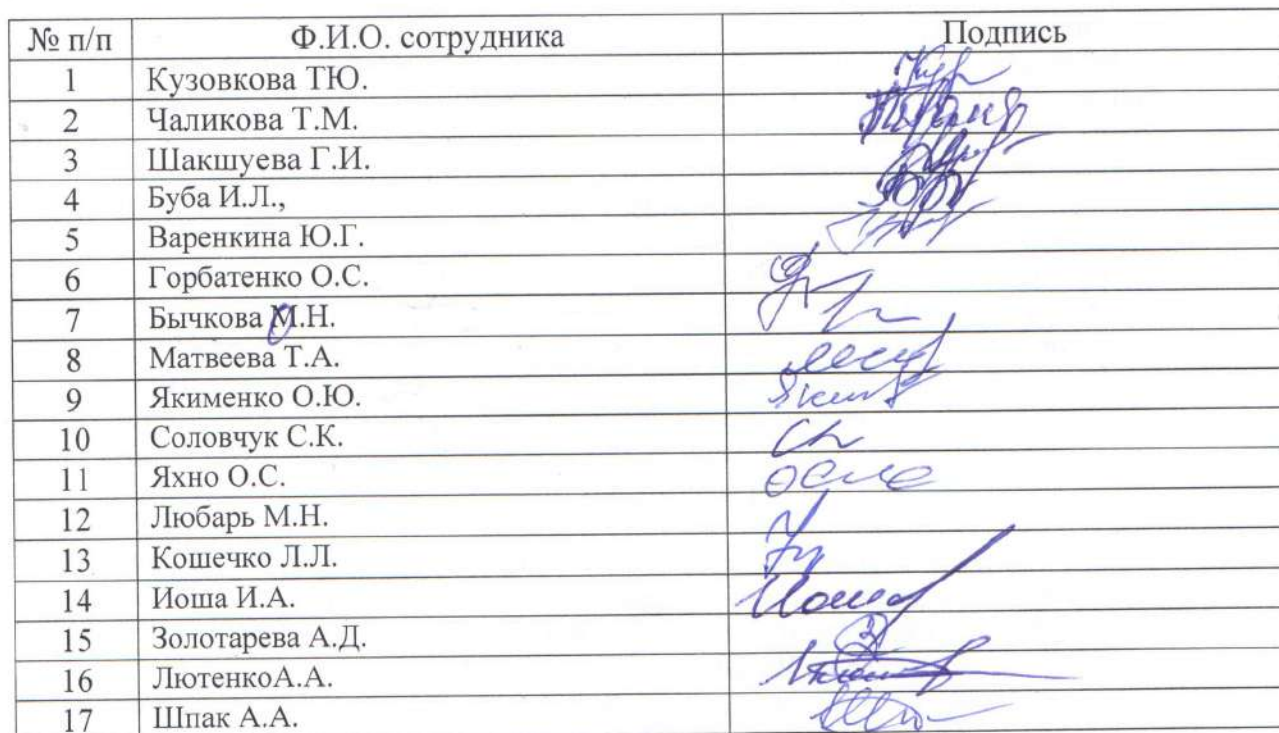 № п/п Ф.И.О. сотрудника Подпись
1 Кузовкова ТЮ.
2 Чаликова Т.М.
3 Шакшуева Г.И.
4 Буба И.Л.,
5 Варенкина Ю.Г.
6 Горбатенко О.С.
7 Бычкова М.Н.
8 Матвеева Т.А.
9 Якименко О.Ю.
10 Соловчук С.К.
11 Яхно О.С.
12 Любарь М.Н.
13 Кошечко Л.Л.
14 Иоша И.А.
15 Золотарева А.Д.
16 ЛютенкоА.А.
17 Шпак А.А.